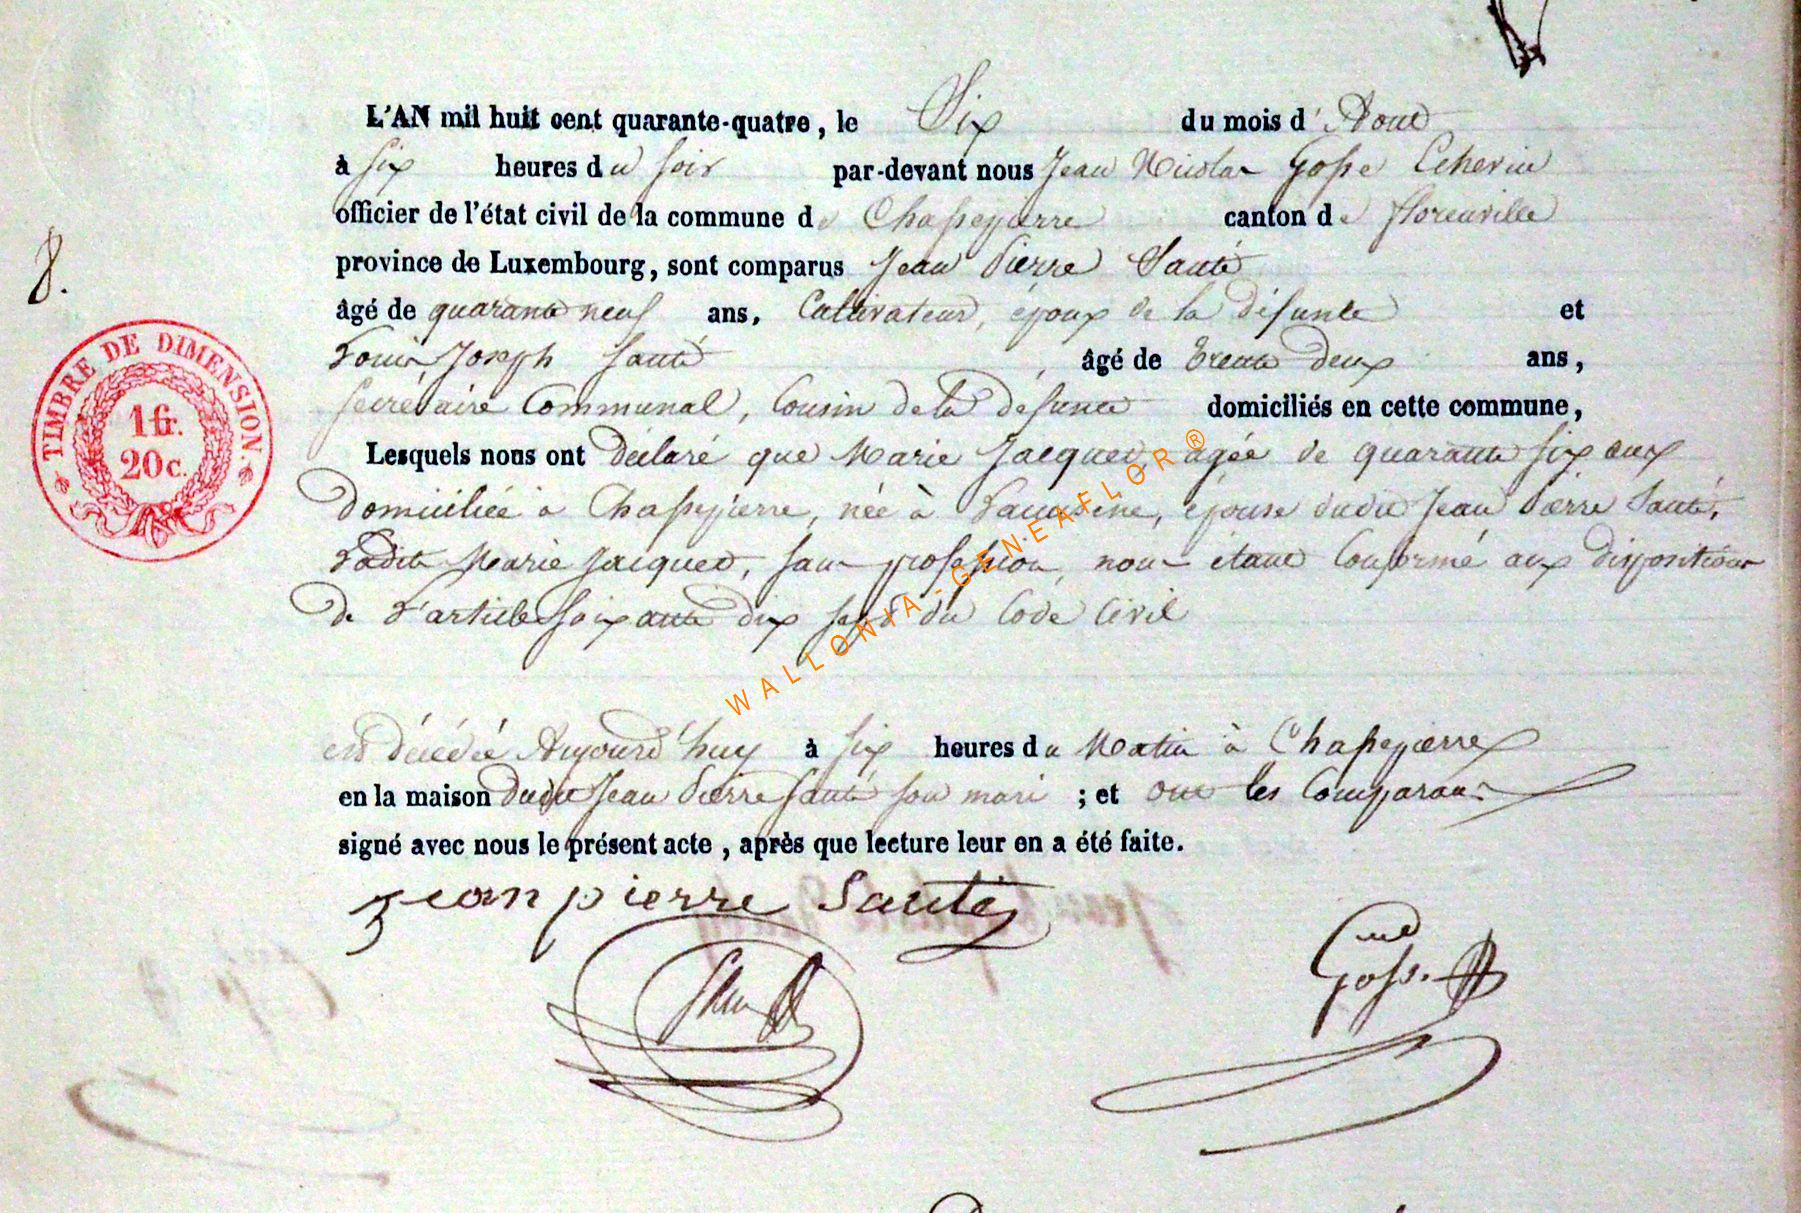 L'AN mil huit cent quarante-quatre, le Six du mois d'Aout
à six heures du soir par-devant nous Jean Nicolas Gosse Echevin
officier de l'état civil de la commune de Chassepierre canton de florenville
province de Luxembourg, sont comparus Jean Pierre Sauté
âgé de quarante neuf ans, Cultivateur, époux de la défunte et
Louis Joseph Sauté, âgé de trente deux ans,
secrétaire Communal, Cousin de la défunte domiciliés en cette commune,
8.
TIMBRE DE DIMENSION
1 fr.
20 c.
Lesquels nous ont déclaré que Marie Jacquet, agée de quarante six ans
domiciliée à Chassepierre, née à, épouse dudit Jean Pierre Sauté,
Ladite Marie Jacquet, sans profession, nous étant Conformé aux dispositions
de L'article soixante dix sept du Code Civil
est décédée Aujourd'huy à six heures du Matin à Chassepierre
en la maison dudit Jean Pierre Sauté son mari ; et ont les Comparans
signé avec nous le présent acte, après que lecture leur en a été faite.
Jean pierre Sauté
Gosse
WALLONIA-GENEAFLOR®